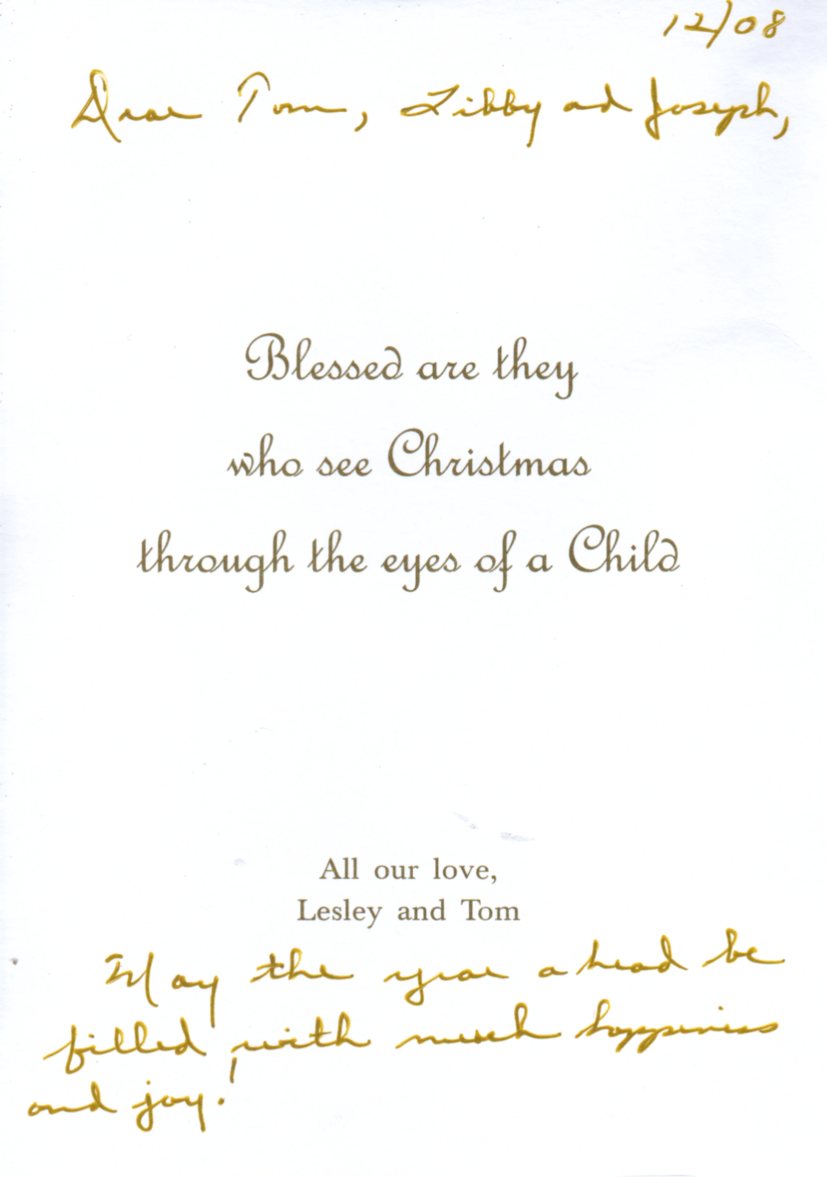 12/08
Dear Tom, Libby and Joseph,
Blessed are they
who see Christmas
through the eyes of a Child
All our love,
Lesley and Tom
May the year ahead be
filled with much happiness
and joy!